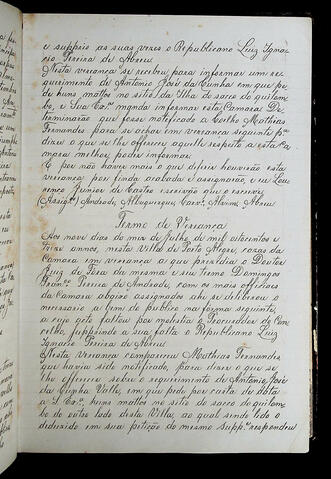 e supprio as suas vezes o Republicano Luiz Igna-
cio Pereira de Abreu
Nesta vereança se recebeu para informar um re-
querimento de Antonio José da Cunha em que pe-
de huns mattos no sitio da Ilha do sacco do quilom-
bo, e Sua Exª manda informar esta Camara De-
terminarão que fosse notificado a Coelho Mathias
Fernandes para se achar em vereança seguinte pª
dizer o que se lhe offerecer aquelle respeito a esta Ca-
mara melhor poder informar.
E por não haver mais o que diferir houverão esta
vereança por finda acabada e assignarão, e eu Lou-
renço Junior de Castro escrivão que o escrevi
(Assigº) Andrade, Albuquerque, Carvº, Alvim, Abreu
Termo de Vereança
Aos nove dias do mar de Julho de mil oitocentos e
treze annos, nesta Villa de Porto Alegre, cazas da
Camara em vereança a que prezidio o Doutor
Juiz de Fora da mesma e seu termo Domingos
Pereira de Andrade, com os mais officiaes
da Camara abaixo assignados ahi se deliberou o
necessario a bem do publico na forma seguinte,
a cujo acto faltou por molestia o Procurador do Con-
celho, supprindo a sua falta o Republicano Luiz
Ignacio Pereira de Abreu
Nesta vereança compareceu Mathias Fernandes
que havia sido notificado, para dizer o que se
lhe offerecia sobre o requerimento de Antonio José
da Cunha Valle, em que pede por carta de data
a S. Exª huns mattos no sitio do sacco do quilom-
bo do outro lado desta Villa, ao qual sendo lido o
deduzido em sua petição do mesmo Suppº respondeu